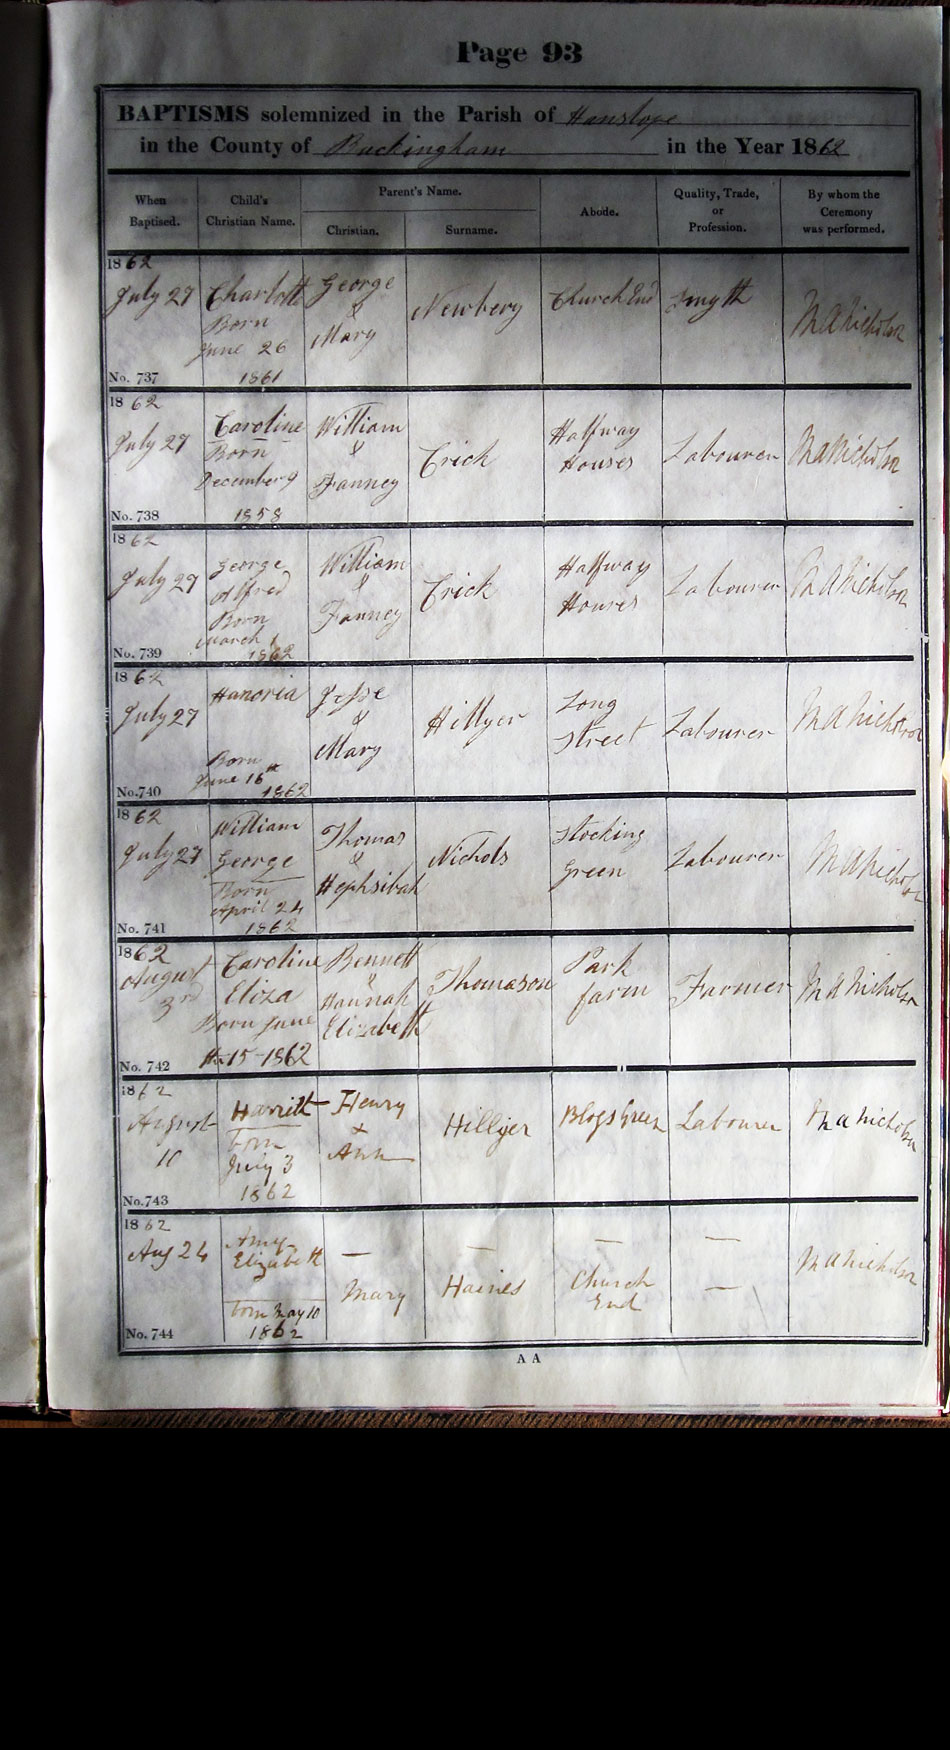 Page 93
BAPTISMS solemnized in the Parish of Hanslope
in the County of Buckingham in the Year 1862
When Baptised. Child's Christian Name. Parent's Name. Christian. Surname. Abode. Quality, Trade, or Profession. By whom the Ceremony was performed.
1862
July 27 Charlott Born June 26 1861 George & Mary Newberry Church End Smyth M A Nicholson
No. 737
1862
July 27 Caroline Born December 9 1858 William & Fanney Erick Halfway Houses Labourer M A Nicholson
No. 738
1862
July 27 George Alfred Born March 1 1862 William & Fanney Erick Halfway Houses Labourer M A Nicholson
No. 739
1862
July 27 Hanoria Born June 16th 1862 Jesse & Mary Hillyer Long Street Labourer M A Nicholson
No. 740
1862
July 27 William George Born April 24 1862 Thomas & Hephsibah Nichols Stocking Green Labourer M A Nicholson
No. 741
1862
August 3rd Caroline Eliza Born June the 15 1862 Bennett & Hannah Elizabeth Thomason Park farm Farmer M A Nicholson
No. 742
1862
August 10 Harriett born July 3 1862 Henry & Ann Hillyer Labourer M A Nicholson
No. 743
1862
Aug 24 Amy Elizabeth born May 10 1862 — Mary — Haines — Church End — — M A Nicholson
No. 744
A A